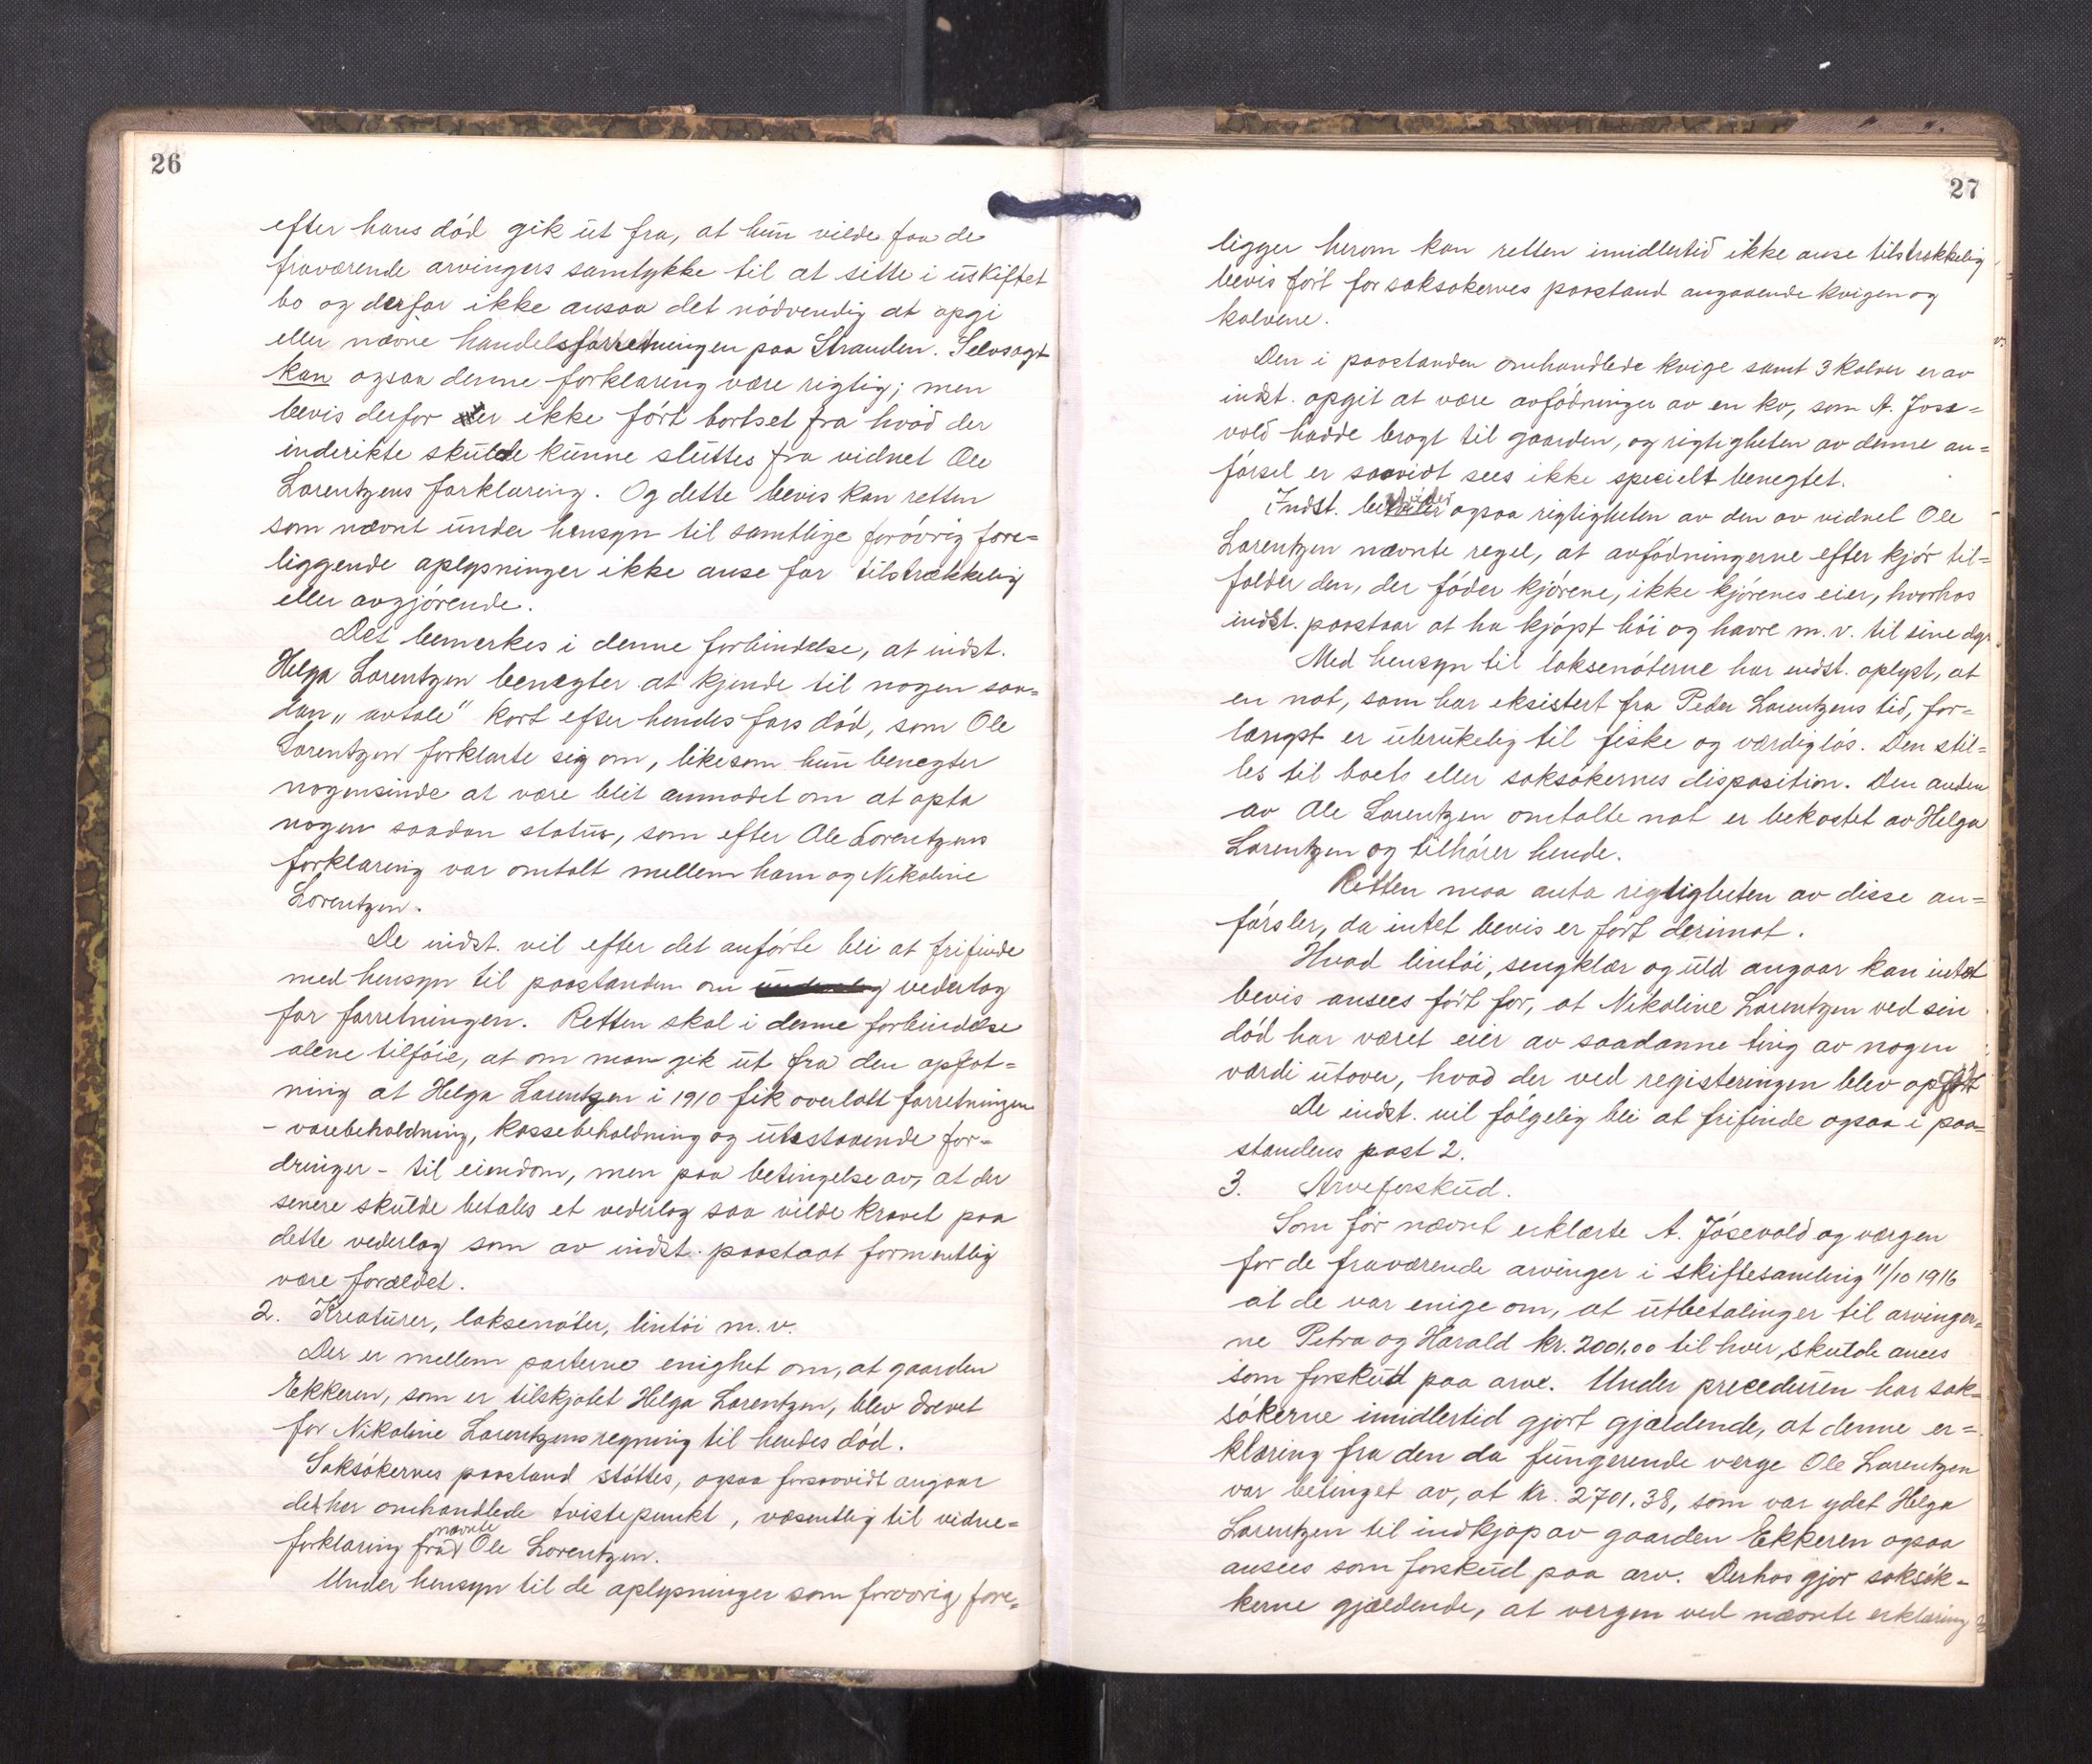 26
efter hans död gik ut fra, at hun vilde faa de
fraværende arvingers samtykke til at sitte i uskiftet
bo og derfor ikke ansaa det nödvendig at opgi
eller nævne handelsforretningen paa Stranden. Selvsagt
kan ogsaa denne forklaring være rigtig; men
bevis derfor er ikke fört bortset fra hvad der
inderikte skulde kunne sluttes fra vidnet Ole
Lorentzens forklaring. Og dette bevis kan retten
som nævnt under hensyn til samtlige forövrig fore=
liggende oplysninger ikke anse for tilstrækkelig
eller avgjörende.
Det bemerkes i denne forbindelse, at indst.
Helga Lorentzen benegter at kjende til nogen saa=
dan „avtale" kort efter hendes fars död, som Ole
Lorentzen forklarte sig om, likesom hun benegter
nogensinde at være blit anmodet om at opta
nogen saadan status, som efter Ole Lorentzens
forklaring var omtalt mellem ham og Nikoline
Lorentzen.
De indst. vil efter det anförte bli at frifinde
med hensyn til paastanden om vederlag
for forretningen. Retten skal i denne forbindelse
alene tilföie, at om man gik ut fra den opfat=
ning at Helga Lorentzen i 1910 fik overlatt forretningen
- varebeholdning, kassebeholdning og utestaaende for=
dringer - til eiendom, men paa betingelse av, at der
senere skulde betales et vederlag saa vilde kravet paa
dette vederlag som av indst. paastaat formentlig
være forældet.
2. Kreaturer, laksenöter, lintöi m.v.
Der er mellem parterne enighet om, at gaarden
Ekkeren, som er tilskjötet Helga Lorentzen, blev drevet
for Nikoline Lorentzens regning til hendes död.
Saksökernes paastand stöttes, ogsaa forsaavidt angaar
det her omhandlede tvistepunkt, væsentlig til vidne=
forklaring fra nævnte Ole Lorentzen.
Under hensyn til de oplysninger som forövrig fore=
27
ligger herom kan retten imidlertid ikke anse tilstrækkelig
bevis fört for saksökernes paastand angaaende kvigen og
kalvene.
Den i paastanden omhandlede kvige samt 3 kalver er av
indst. opgit at være avfödninger av en ko, som A. Jose=
vold hadde bragt til gaarden, og rigtigheten av denne an=
försel er saavidt sees ikke specielt benegtet.
Indst. bestrider ogsaa rigtigheten av den av vidnet Ole
Lorentzen nævnte regel, at avfödningerne efter kjör til=
falder den, der föder kjörene, ikke kjörenes eier, hvorhos
indst. paastaar at ha kjöpt höi og havre m.v. til sine dyr.
Med hensyn til laksenöterne har indst. oplyst, at
en not, som har eksistert fra Peder Lorentzens tid, for=
længst er ubrukelig til fiske og værdiglös. Den stil=
les til boets eller saksökernes disposition. Den anden
av Ole Lorentzen omtalte not er bekostet av Helga
Lorentzen og tilhörer hende.
Retten maa anta rigtigheten av disse an=
försler, da intet bevis er fört derimot.
Hvad lintöi, sengklær og uld angaar kan intet
bevis ansees fört for, at Nikoline Lorentzen ved sin
död har været eier av saadanne ting av nogen
værdi utover, hvad der ved registeringen blev opfört
De indst. vil fölgelig bli at frifinde ogsaa i paa=
standens post 2.
3. Arveforskud.
Som för nævnt erklærte A. Jösevold og værgen
for de fraværende arvinger i skiftesamling 11/10 1916
at de var enige om, at utbetalinger til arvinger=
ne Petra og Harald kr. 2001.00 til hver, skulde ansees
som forskud paa arve. Under preceduren har sak=
sökerne imidlertid gjort gjældende, at denne er=
klæring fra den da fungerende værge Ole Lorentzen
var betinget av, at kr. 2701.38, som var ydet Helga
Lorentzen til indkjöp av gaarden Ekkeren ogsaa
ansees som forskud paa arv. Derhos gjör saksök=
kerne gjældende, at vergen ved nævnte erklæring